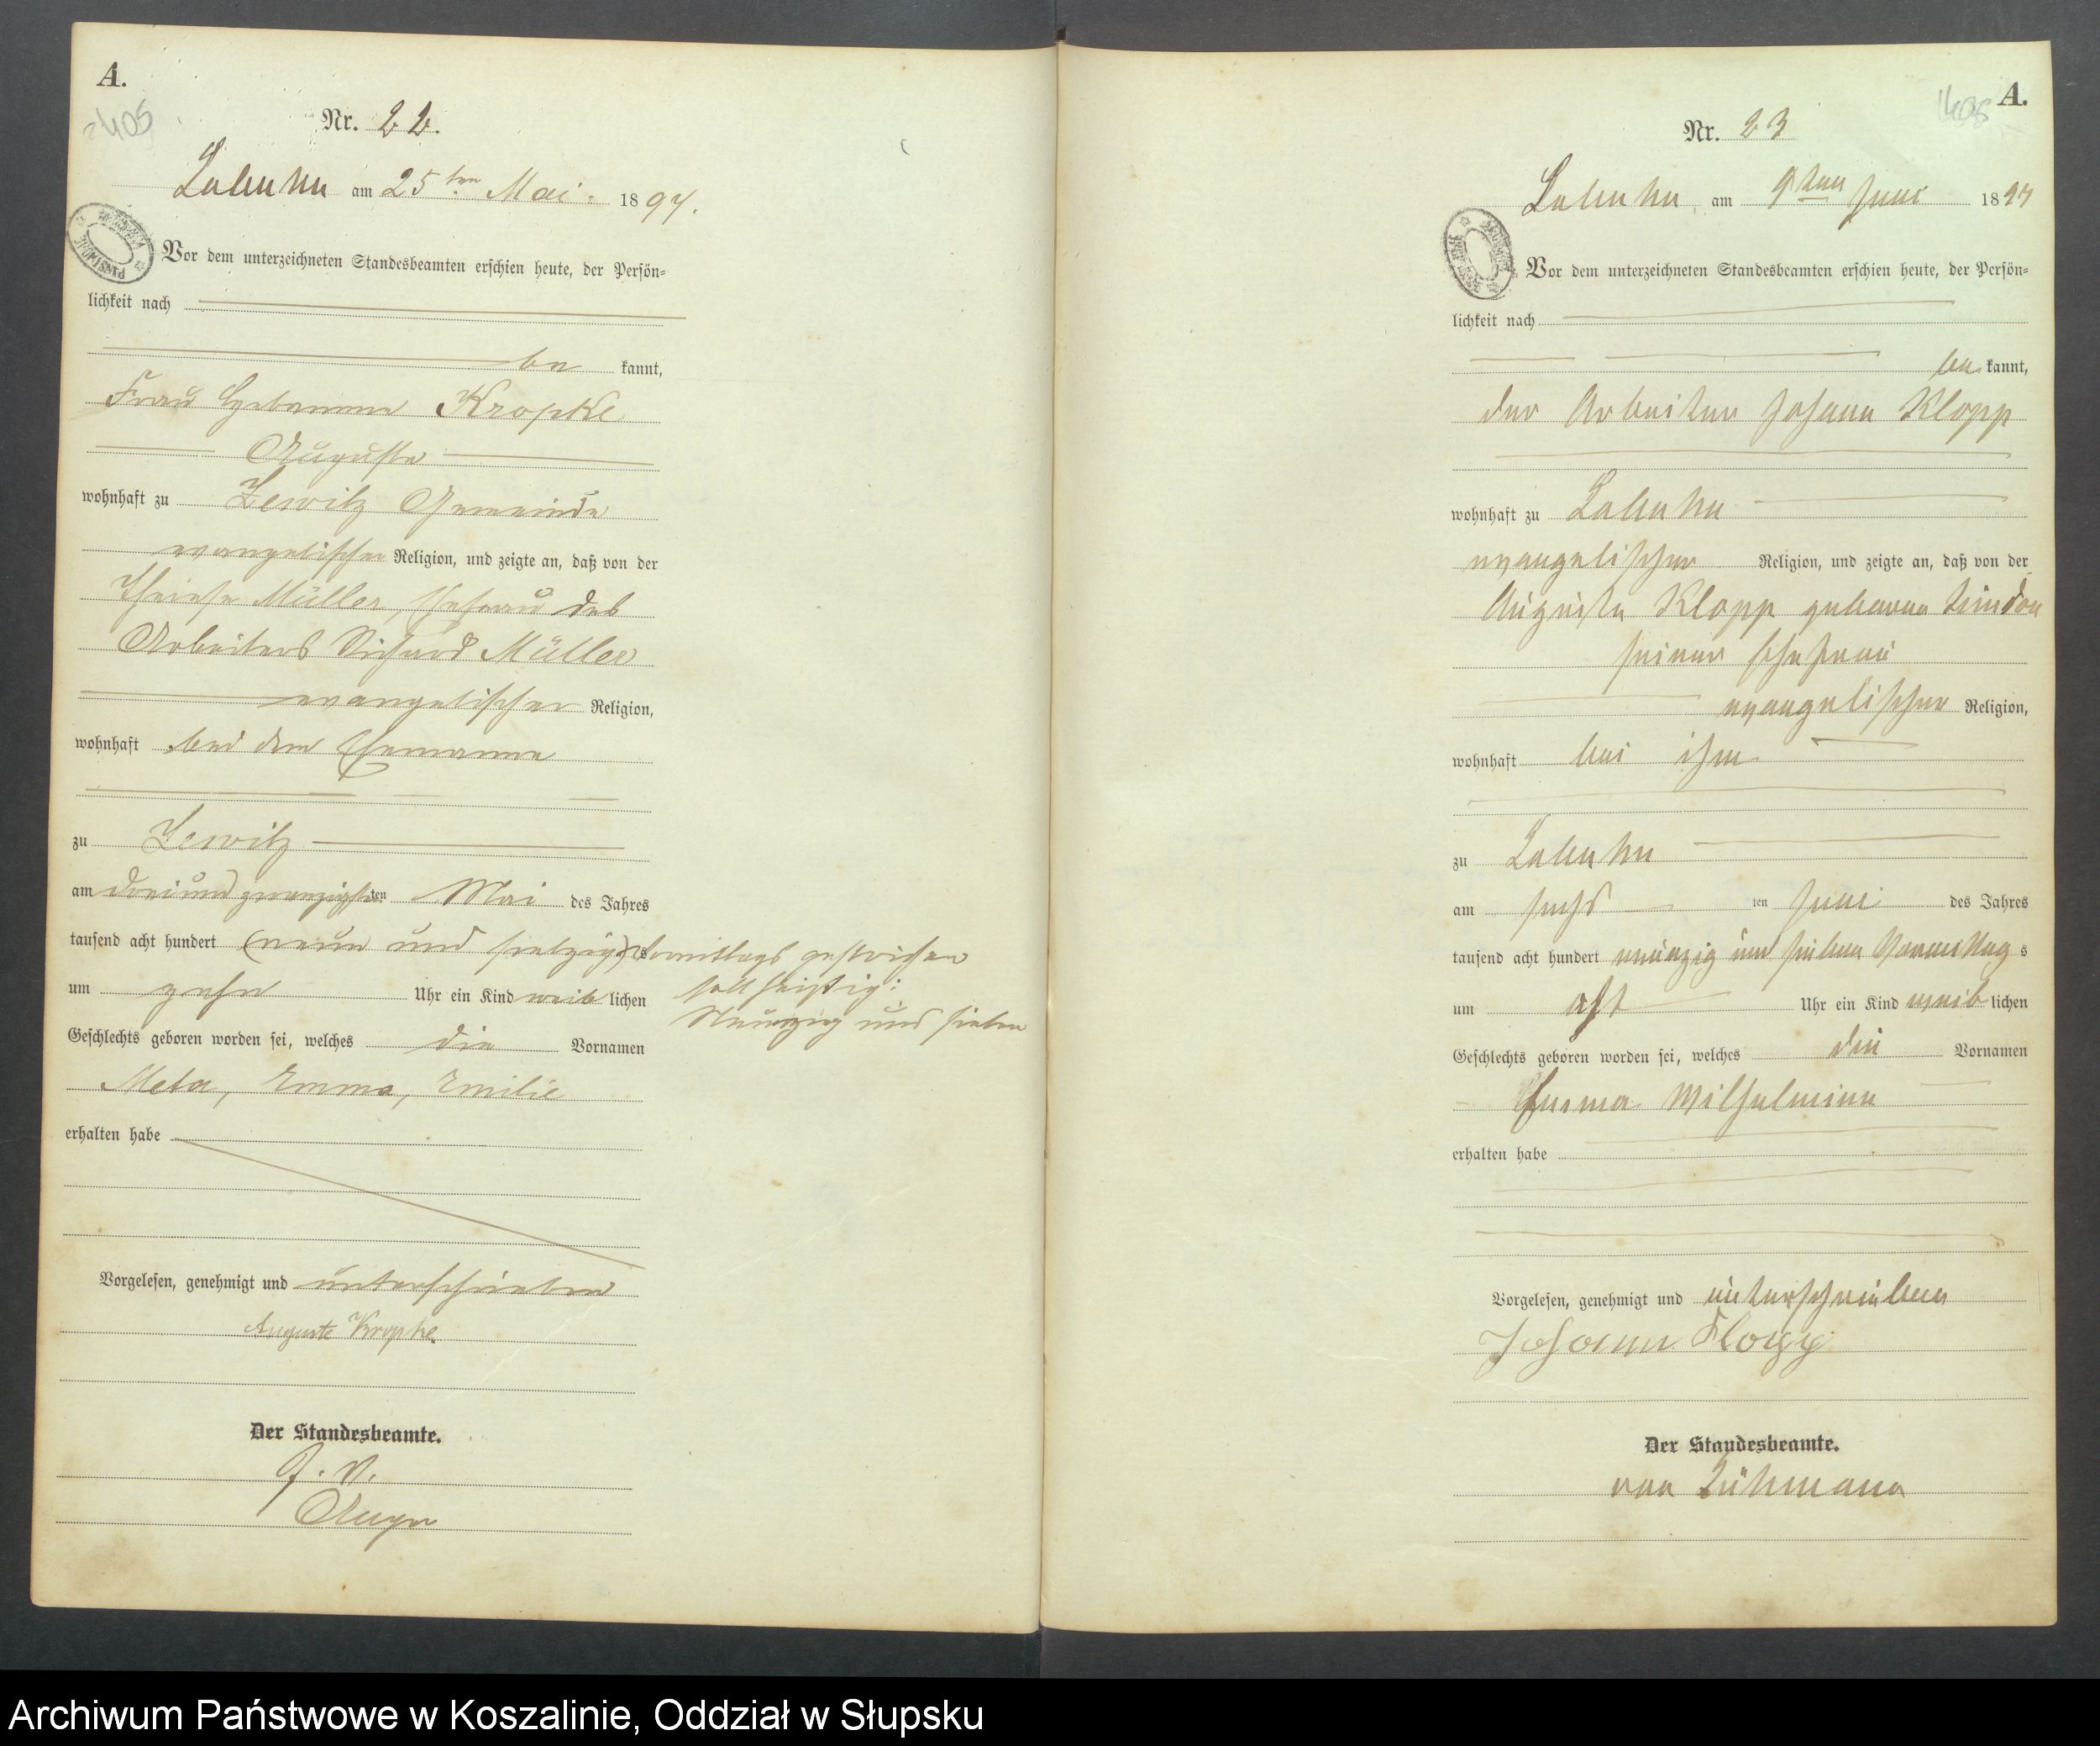 A.
Nr. 22.
Labuhn am 25ten Mai 1897.
Vor dem unterzeichneten Standesbeamten erschien heute, der Persön-
lichkeit nach
be kannt,
Frau Hebamme Kropke
Auguste
wohnhaft zu Zewitz Gemeinde
evangelischer Religion, und zeigte an, daß von der
Müller, Ehefrau des
Arbeiters Richard Müller
evangelischer Religion,
wohnhaft bei dem Ehemanne
zu Zewitz
am dreiundzwanzigsten Mai des Jahres
tausend acht hundert (neun und siebzig) Vormittags gestrichen
um zehn Uhr ein Kind weib lichen
Neunzig und sieben
Geschlechts geboren worden sei, welches die Vornamen
Meta, Emma, Emilie
erhalten habe
Vorgelesen, genehmigt und unterschrieben
Auguste Kropke
Der Standesbeamte.
J. V.
A.
Nr. 23
Labuhn am 9ten Juni 1897
Vor dem unterzeichneten Standesbeamten erschien heute, der Persön-
lichkeit nach
be kannt,
der Arbeiter Johann Klopp
wohnhaft zu Labuhn
evangelischer Religion, und zeigte an, daß von der
Auguste Klopp geborene
seiner Ehefrau
evangelischer Religion,
wohnhaft bei ihm
zu Labuhn
am sechs ten Juni des Jahres
tausend acht hundert neunzig und sieben Vormittag s
um acht Uhr ein Kind weib lichen
Geschlechts geboren worden sei, welches die Vornamen
Emma Wilhelmine
erhalten habe
Vorgelesen, genehmigt und unterschrieben
Johann Klopp
Der Standesbeamte.
von
Archiwum Państwowe w Koszalinie, Oddział w Słupsku